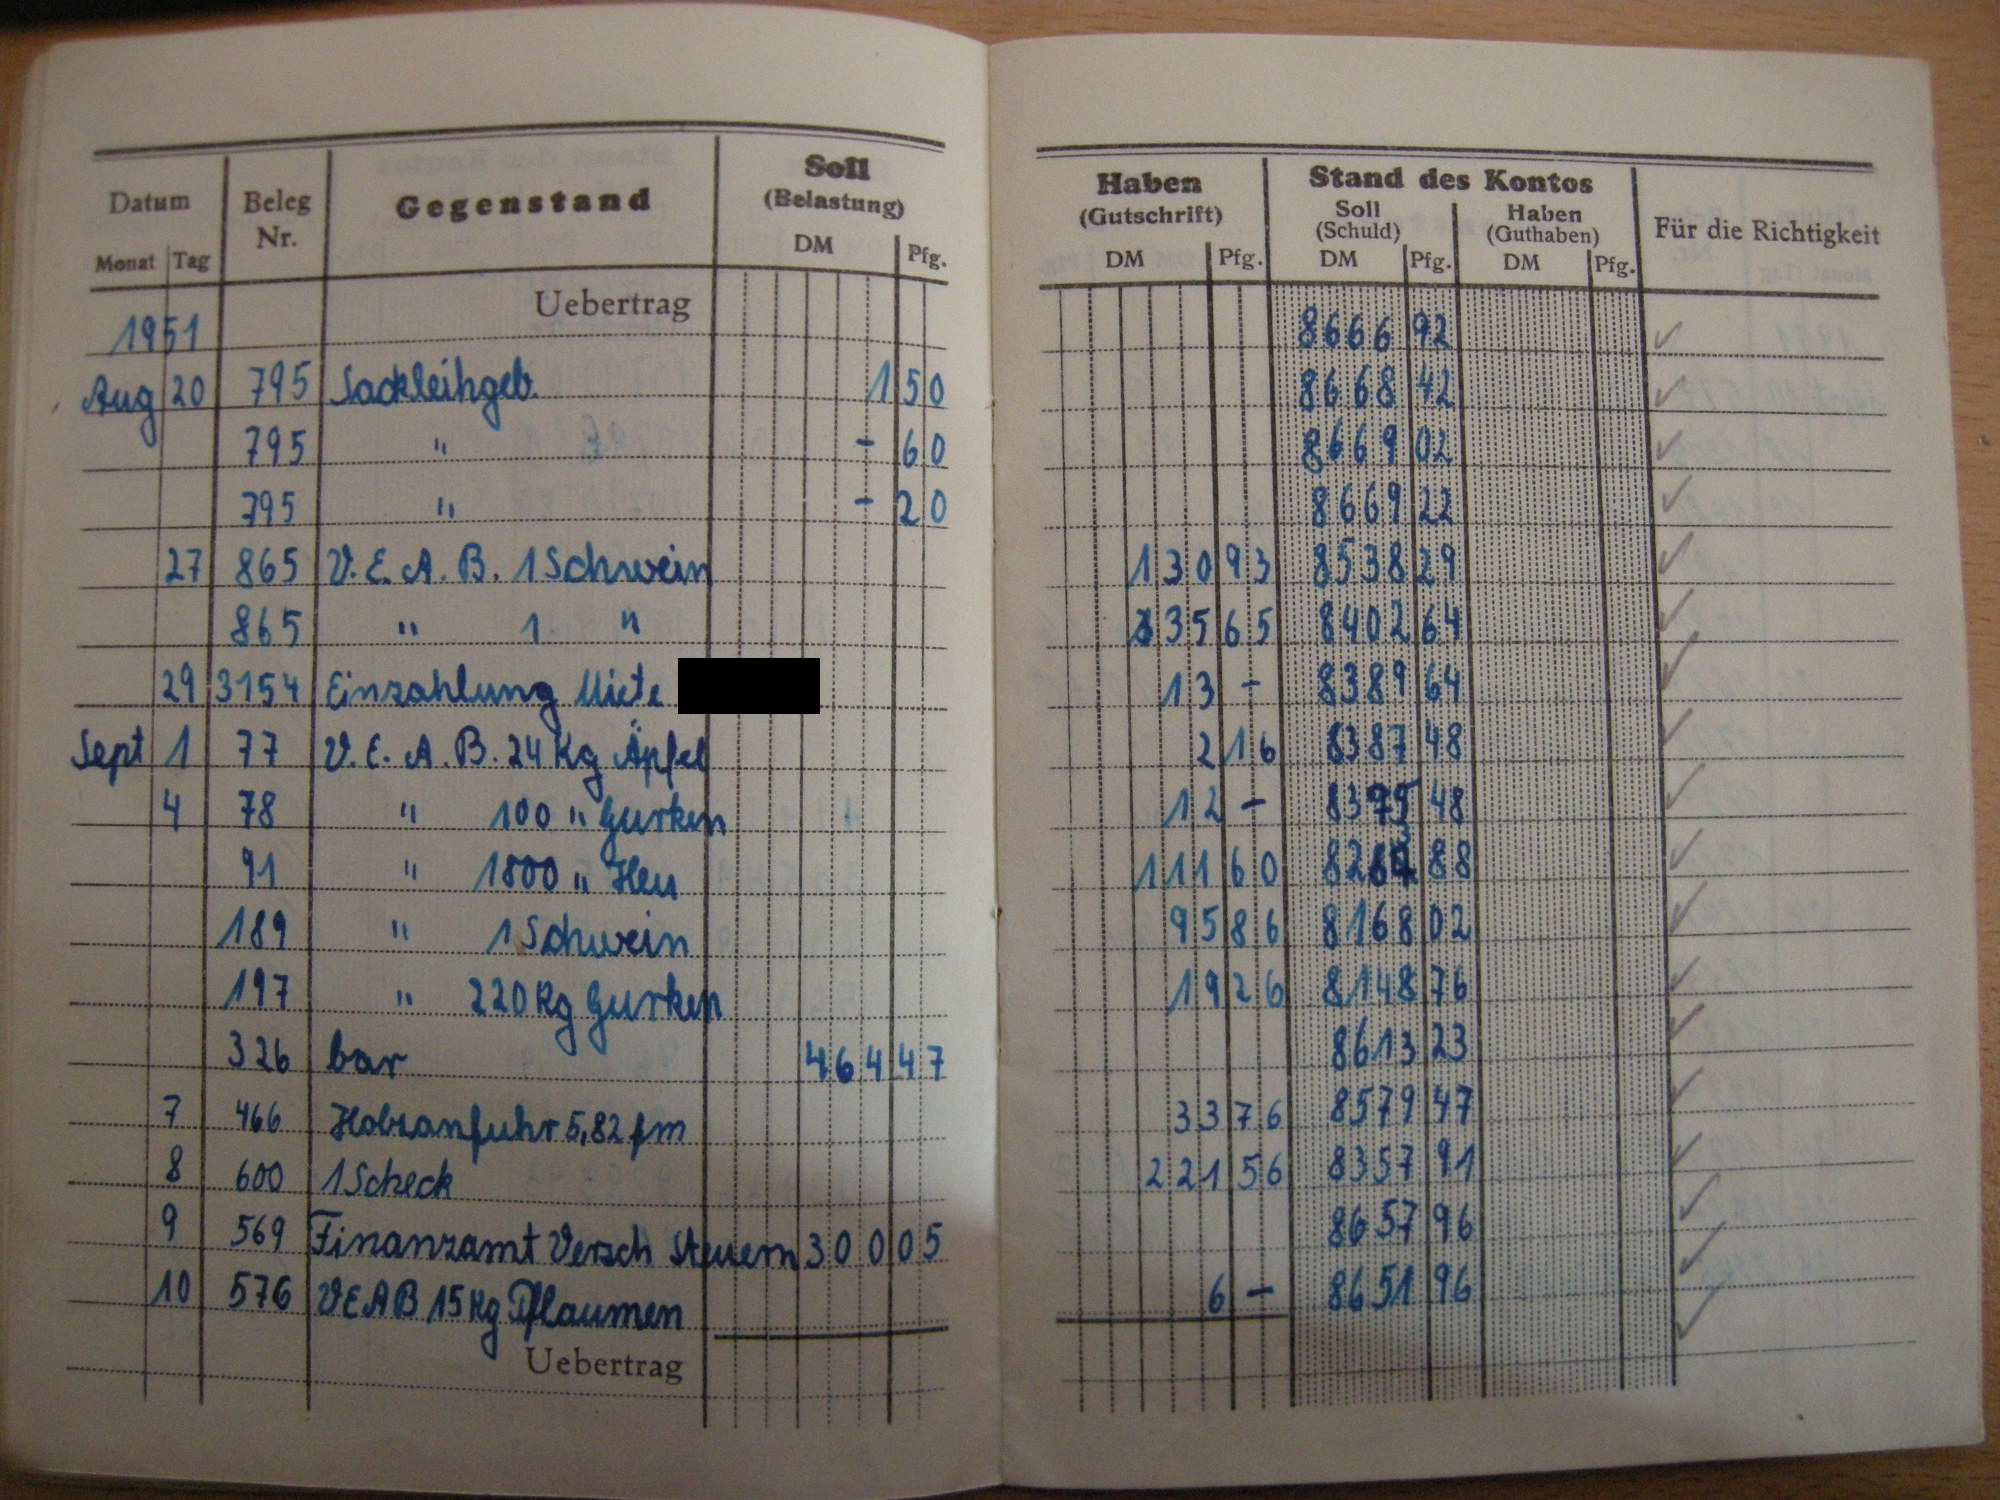 Datum Beleg Nr. Gegenstand Soll (Belastung) Haben (Gutschrift) Stand des Kontos Für die Richtigkeit
Soll (Schuld) Haben (Guthaben)
Monat Tag DM Pfg. DM Pfg. DM Pfg. DM Pfg.
1951 Uebertrag 8666 92
Aug 20 795 Sackleihgeb. 1 50 8668 42
795 " - 60 8669 02
795 " - 20 8669 22
27 865 V. E. A. B. 1 Schwein 130 93 8538 29
865 " 1 " 135 65 8402 64
29 3154 Einzahlung Miete 13 - 8389 64
Sept 1 77 V. E. A. B. 24 Kg Äpfel 2 16 8387 48
4 78 " 100 " Gurken 12 - 8375 48
91 " 1800 " Heu 111 60 8263 88
189 " 1 Schwein 95 86 8168 02
197 " 220 Kg Gurken 19 26 8148 76
326 bar 464 47 8613 23
7 466 Holzanfuhr 5,82 fm 33 76 8579 47
8 600 1 Scheck 221 56 8357 91
9 569 Finanzamt Versch Steuern 300 05 8657 96
10 576 VEAB 15 Kg Pflaumen 6 - 8651 96
Uebertrag